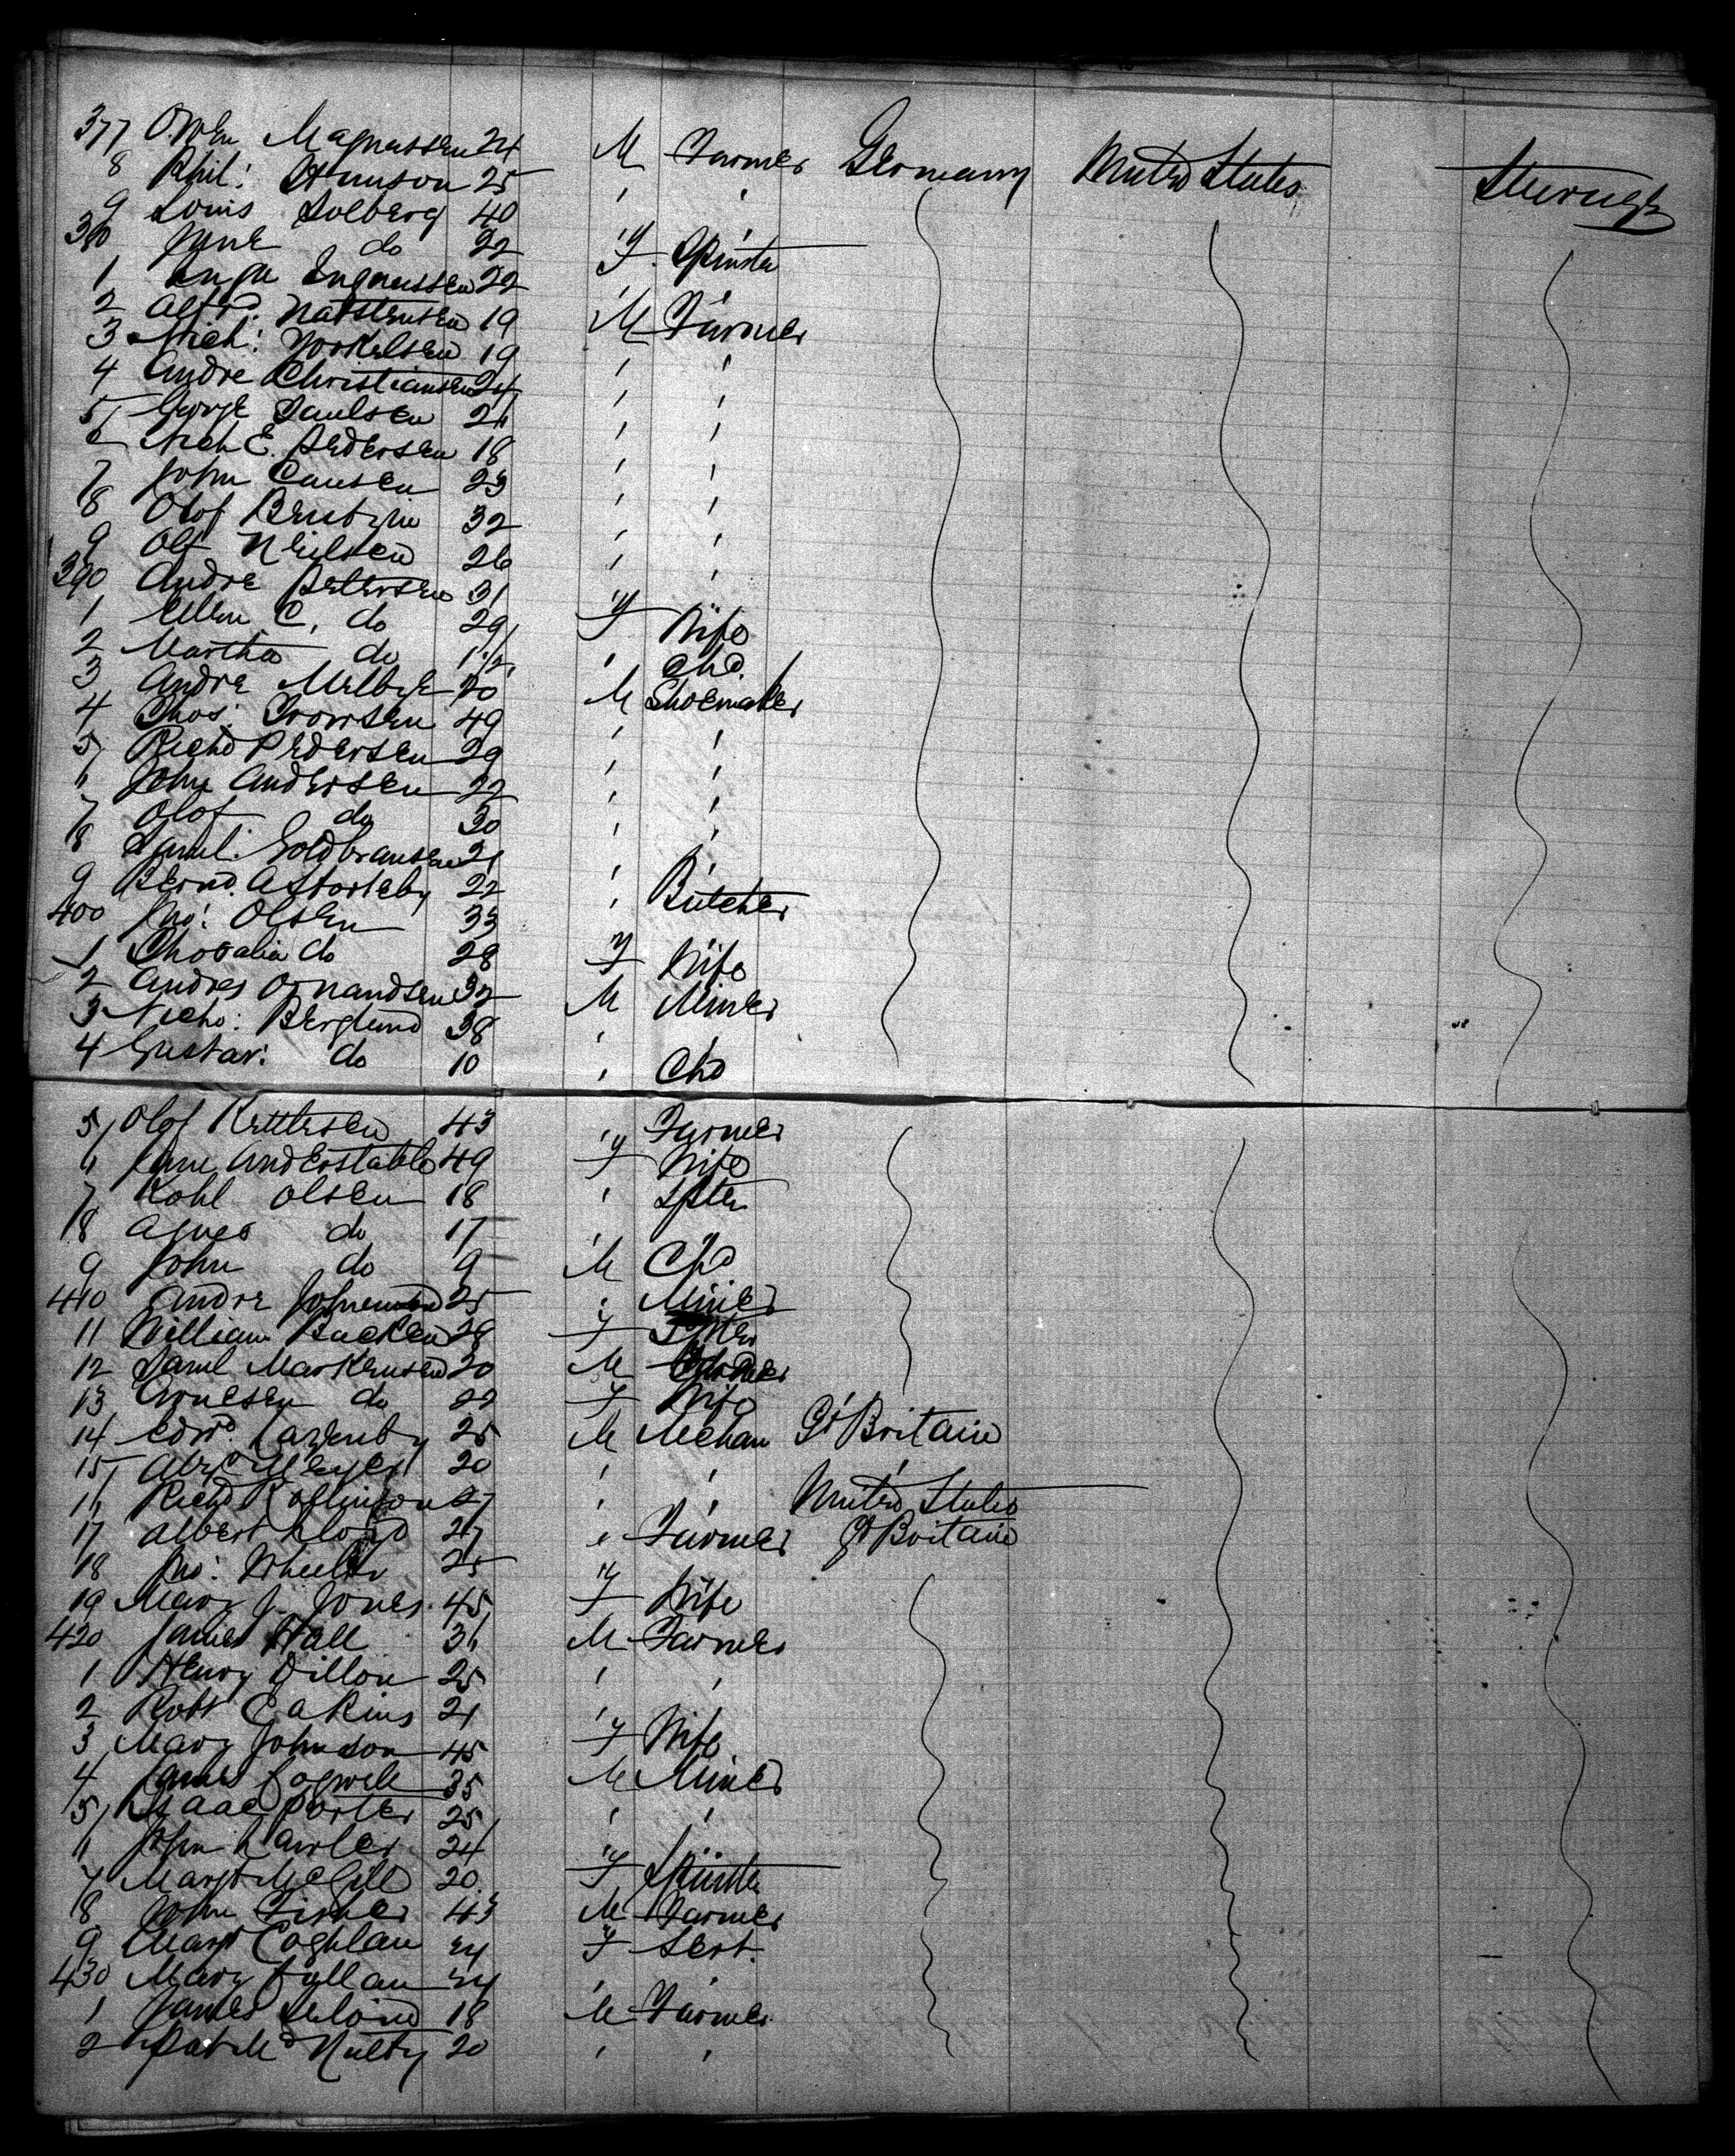 377 Owen Magnussen 24 M Farmer Germany United States Steerage
8 Phil: Hunson 25 " "
9 Louis Solberg 40 " "
380 Jane do 22 F. Spinster
1 Inga Ingnussen 22 " "
2 Alfd. Natstensen 19 M Farmer
3 Nich: Yorkelsen 19 " "
4 Andre Christiansen 24 " "
5 George Paulsen 21 " "
6 Nich E. Pedersen 18 " "
7 John Causen 23 " "
8 Olof 32 " "
9 Olf Neilsen 26 " "
390 Andre Petersen 31 " "
1 Ellen C. do 29 F Wife
2 Martha do 1 1/2 " Chd.
3 Andre Melbye 20 M Shoemaker
4 Thos: Trowsen 49 " "
5 Richd Pedersen 29 " "
6 John Andersen 22 " "
7 Olof do 30 " "
8 Saml. Goldbransen 21 " "
9 Bernd. A Storleby 22 " Butcher
400 Jno: Olsen 33 " "
1 Thosalia do 28 F Wife
2 Andres Ornandsen 32 M Miner
3 Nicho: Berglund 38 " "
4 Gustav: do 10 " Chd
5 Olof Kettlesen 43 " Farmer
6 Jane Anderstable 49 F Wife
7 Kohl Olsen 18 " Spter
8 Agnes do 17 " "
9 John do 9 M Chd
410 Andre 25 " Miner
11 William Backen 28 F Spter
12 Saml Markensen 20 M Farmer
13 Arnesen do 22 F Wife
14 Edwd. Lazenby 25 M Mechan Gt Britain
15 Meyer 20 " " "
16 Richd Rollinson 27 " " United States
17 Albert Lloyd 27 " Farmer Gt Britain
18 Jno: Wheeler 25 " "
19 Mary J. Jones 45 F Wife
420 James Hall 31 M Farmer
1 Henry Dillon 25 " "
2 Robt Eakins 21 " "
3 Mary Johnson 45 F Wife
4 James Cogwell 35 M Miner
5 Isaac Porter 25 " "
6 John Lawler 24 " "
7 Margt McGill 20 F Spinster
8 John Fisher 43 M Farmer
9 Margt Coghlan 24 F Servt.
430 Mary Cullan 24 " "
1 James Leloind 18 M Farmer
2 Patk McNulty 20 " "